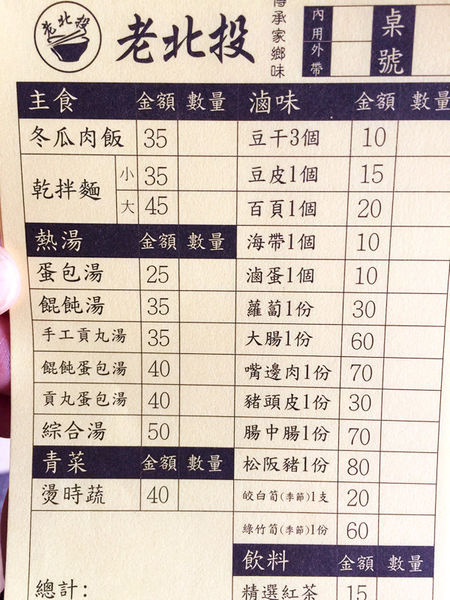 老北投
老北投
傳承家鄉味
內用
外帶
桌號
主食 金額 數量
冬瓜肉飯 35
乾拌麵 小 35
大 45
熱湯 金額 數量
蛋包湯 25
餛飩湯 35
手工貢丸湯 35
餛飩蛋包湯 40
貢丸蛋包湯 40
綜合湯 50
青菜 金額 數量
燙時蔬 40
總計:
滷味 金額 數量
豆干3個 10
豆皮1個 15
百頁1個 20
海帶1個 10
滷蛋1個 10
蘿蔔1份 30
大腸1份 60
嘴邊肉1份 70
豬頭皮1份 30
腸中腸1份 70
松阪豬1份 80
皎白筍(季節)1支 20
綠竹筍(季節)1份 60
飲料 金額 數量
精選紅茶 15